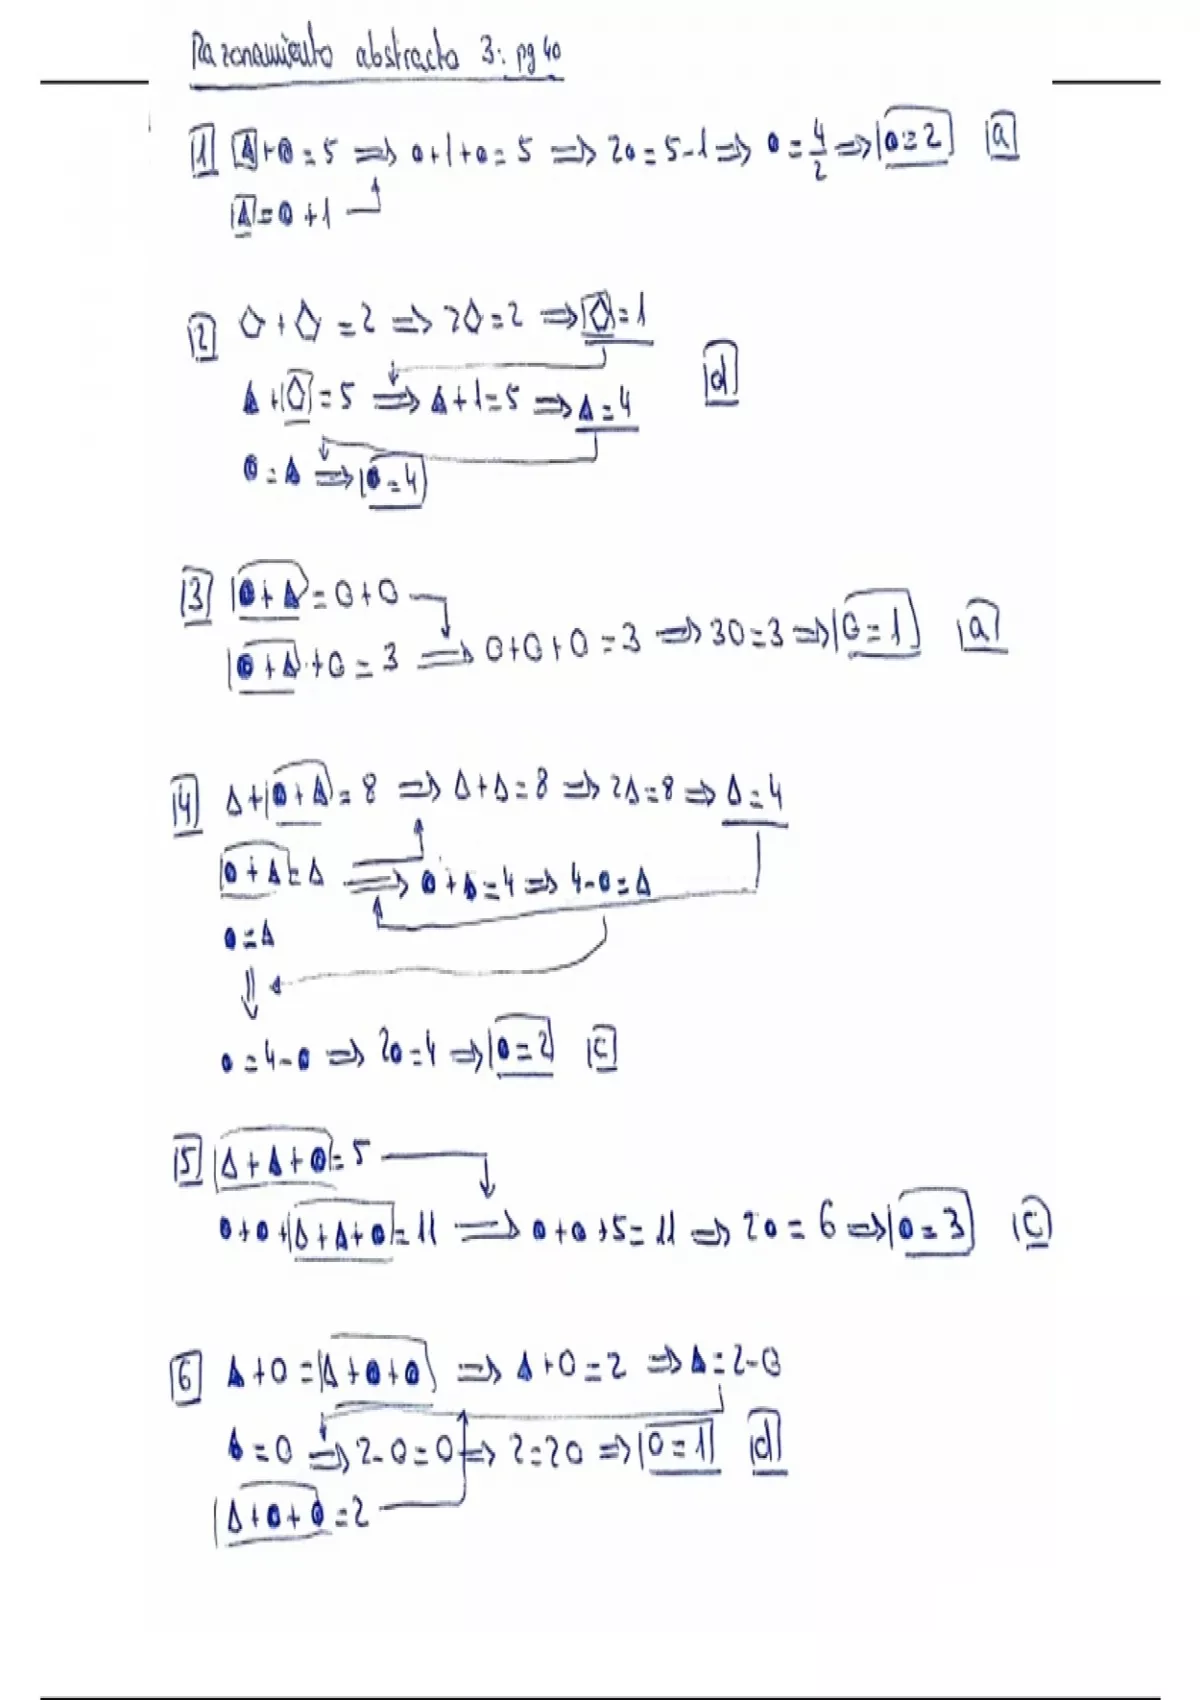 Razonamiento abstracto 3: pg 40
1 △+●=5 ⇒ ●+1+●=5 ⇒ 2●=5-1 ⇒ ●=4/2 ⇒ ●=2 a
△=●+1
2 ⬠+⬠=2 ⇒ 2⬠=2 ⇒ ⬠=1
▲+⬠=5 ⇒ ▲+1=5 ⇒ ▲=4 d
●=▲ ⇒ ●=4
3 ●+▲=○+○
●+▲+○=3 ⇒ ○+○+○=3 ⇒ 3○=3 ⇒ ○=1 a
4 △+●+▲=8 ⇒ △+△=8 ⇒ 2△=8 ⇒ △=4
●+▲=△ ⇒ ●+▲=4 ⇒ 4-●=▲
●=▲
⇓
●=4-● ⇒ 2●=4 ⇒ ●=2 c
5 △+▲+●=5
●+●+△+▲+●=11 ⇒ ●+●+5=11 ⇒ 2●=6 ⇒ ●=3 c
6 ▲+○=△+●+● ⇒ ▲+○=2 ⇒ ▲=2-○
▲=○ ⇒ 2-○=○ ⇒ 2=2○ ⇒ ○=1 d
△+●+●=2